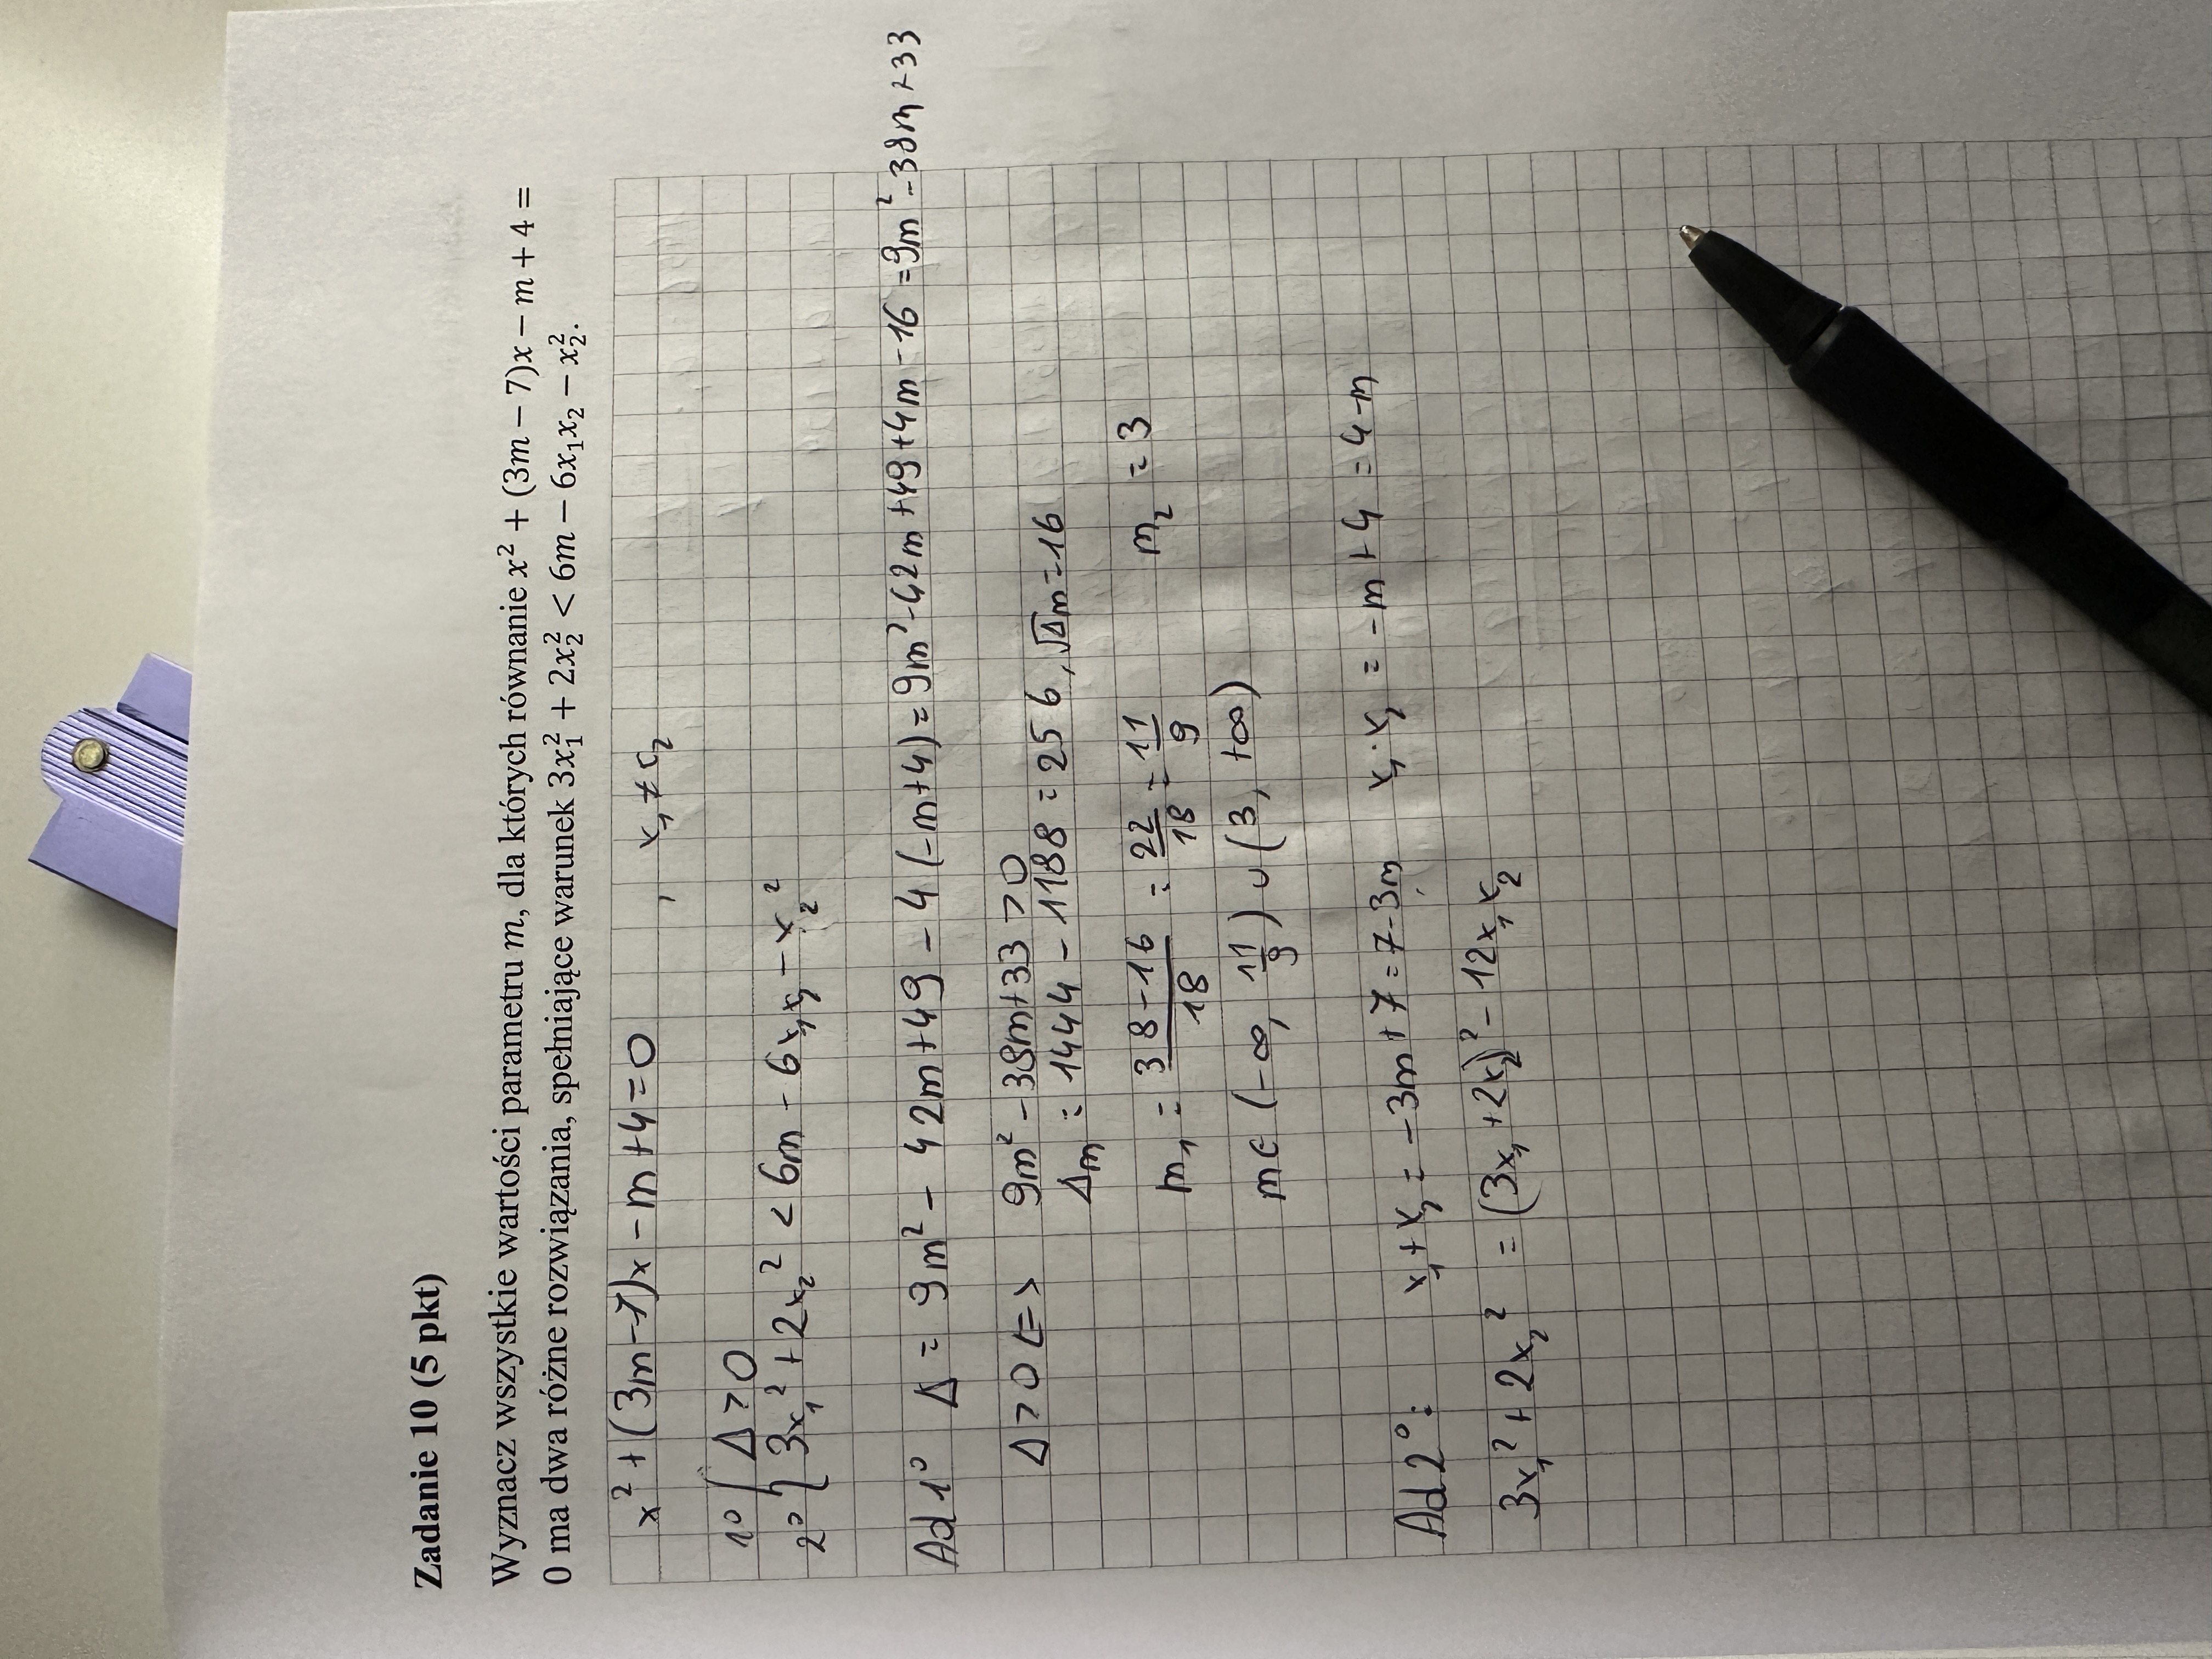 Zadanie 10 (5 pkt)
Wyznacz wszystkie wartości parametru m, dla których równanie x² + (3m − 7)x − m + 4 =
0 ma dwa różne rozwiązania, spełniające warunek 3x₁² + 2x₂² < 6m − 6x₁x₂ − x₂².
x² + (3m-7)x - m+4=0 , x₁ ≠ x₂
1° { Δ>0
2° { 3x₁² + 2x₂² < 6m - 6x₁x₂ - x₂²
Ad 1° Δ = 9m² - 42m+49 - 4(-m+4) = 9m²-42m+49+4m-16 = 9m²-38m+33
Δ>0 <=> 9m²-38m+33>0
Δm = 1444 - 1188 = 256, √Δm = 16
m₁ = (38-16)/18 = 22/18 = 11/9 m₂ = 3
m ∈ (-∞, 11/9) ∪ (3, +∞)
Ad 2°: x₁+x₂ = -3m+7 = 7-3m, x₁·x₂ = -m+4 = 4-m
3x₁² + 2x₂² = (3x₁+2x₂)² - 12x₁x₂